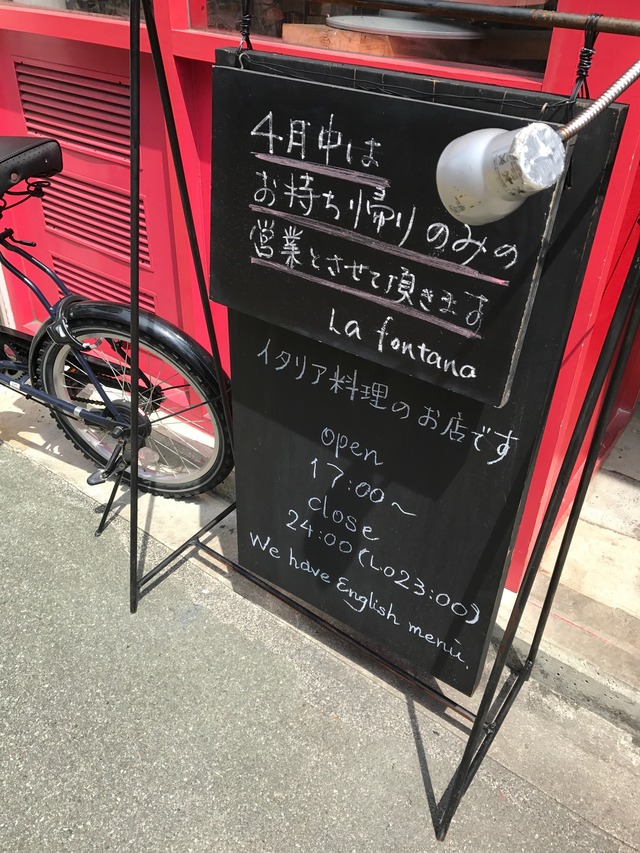 4月中は
お持ち帰りのみの
営業とさせて頂きます
La fontana
イタリア料理のお店です
open
17:00〜
close
24:00(Lo23:00)
We have English menu.